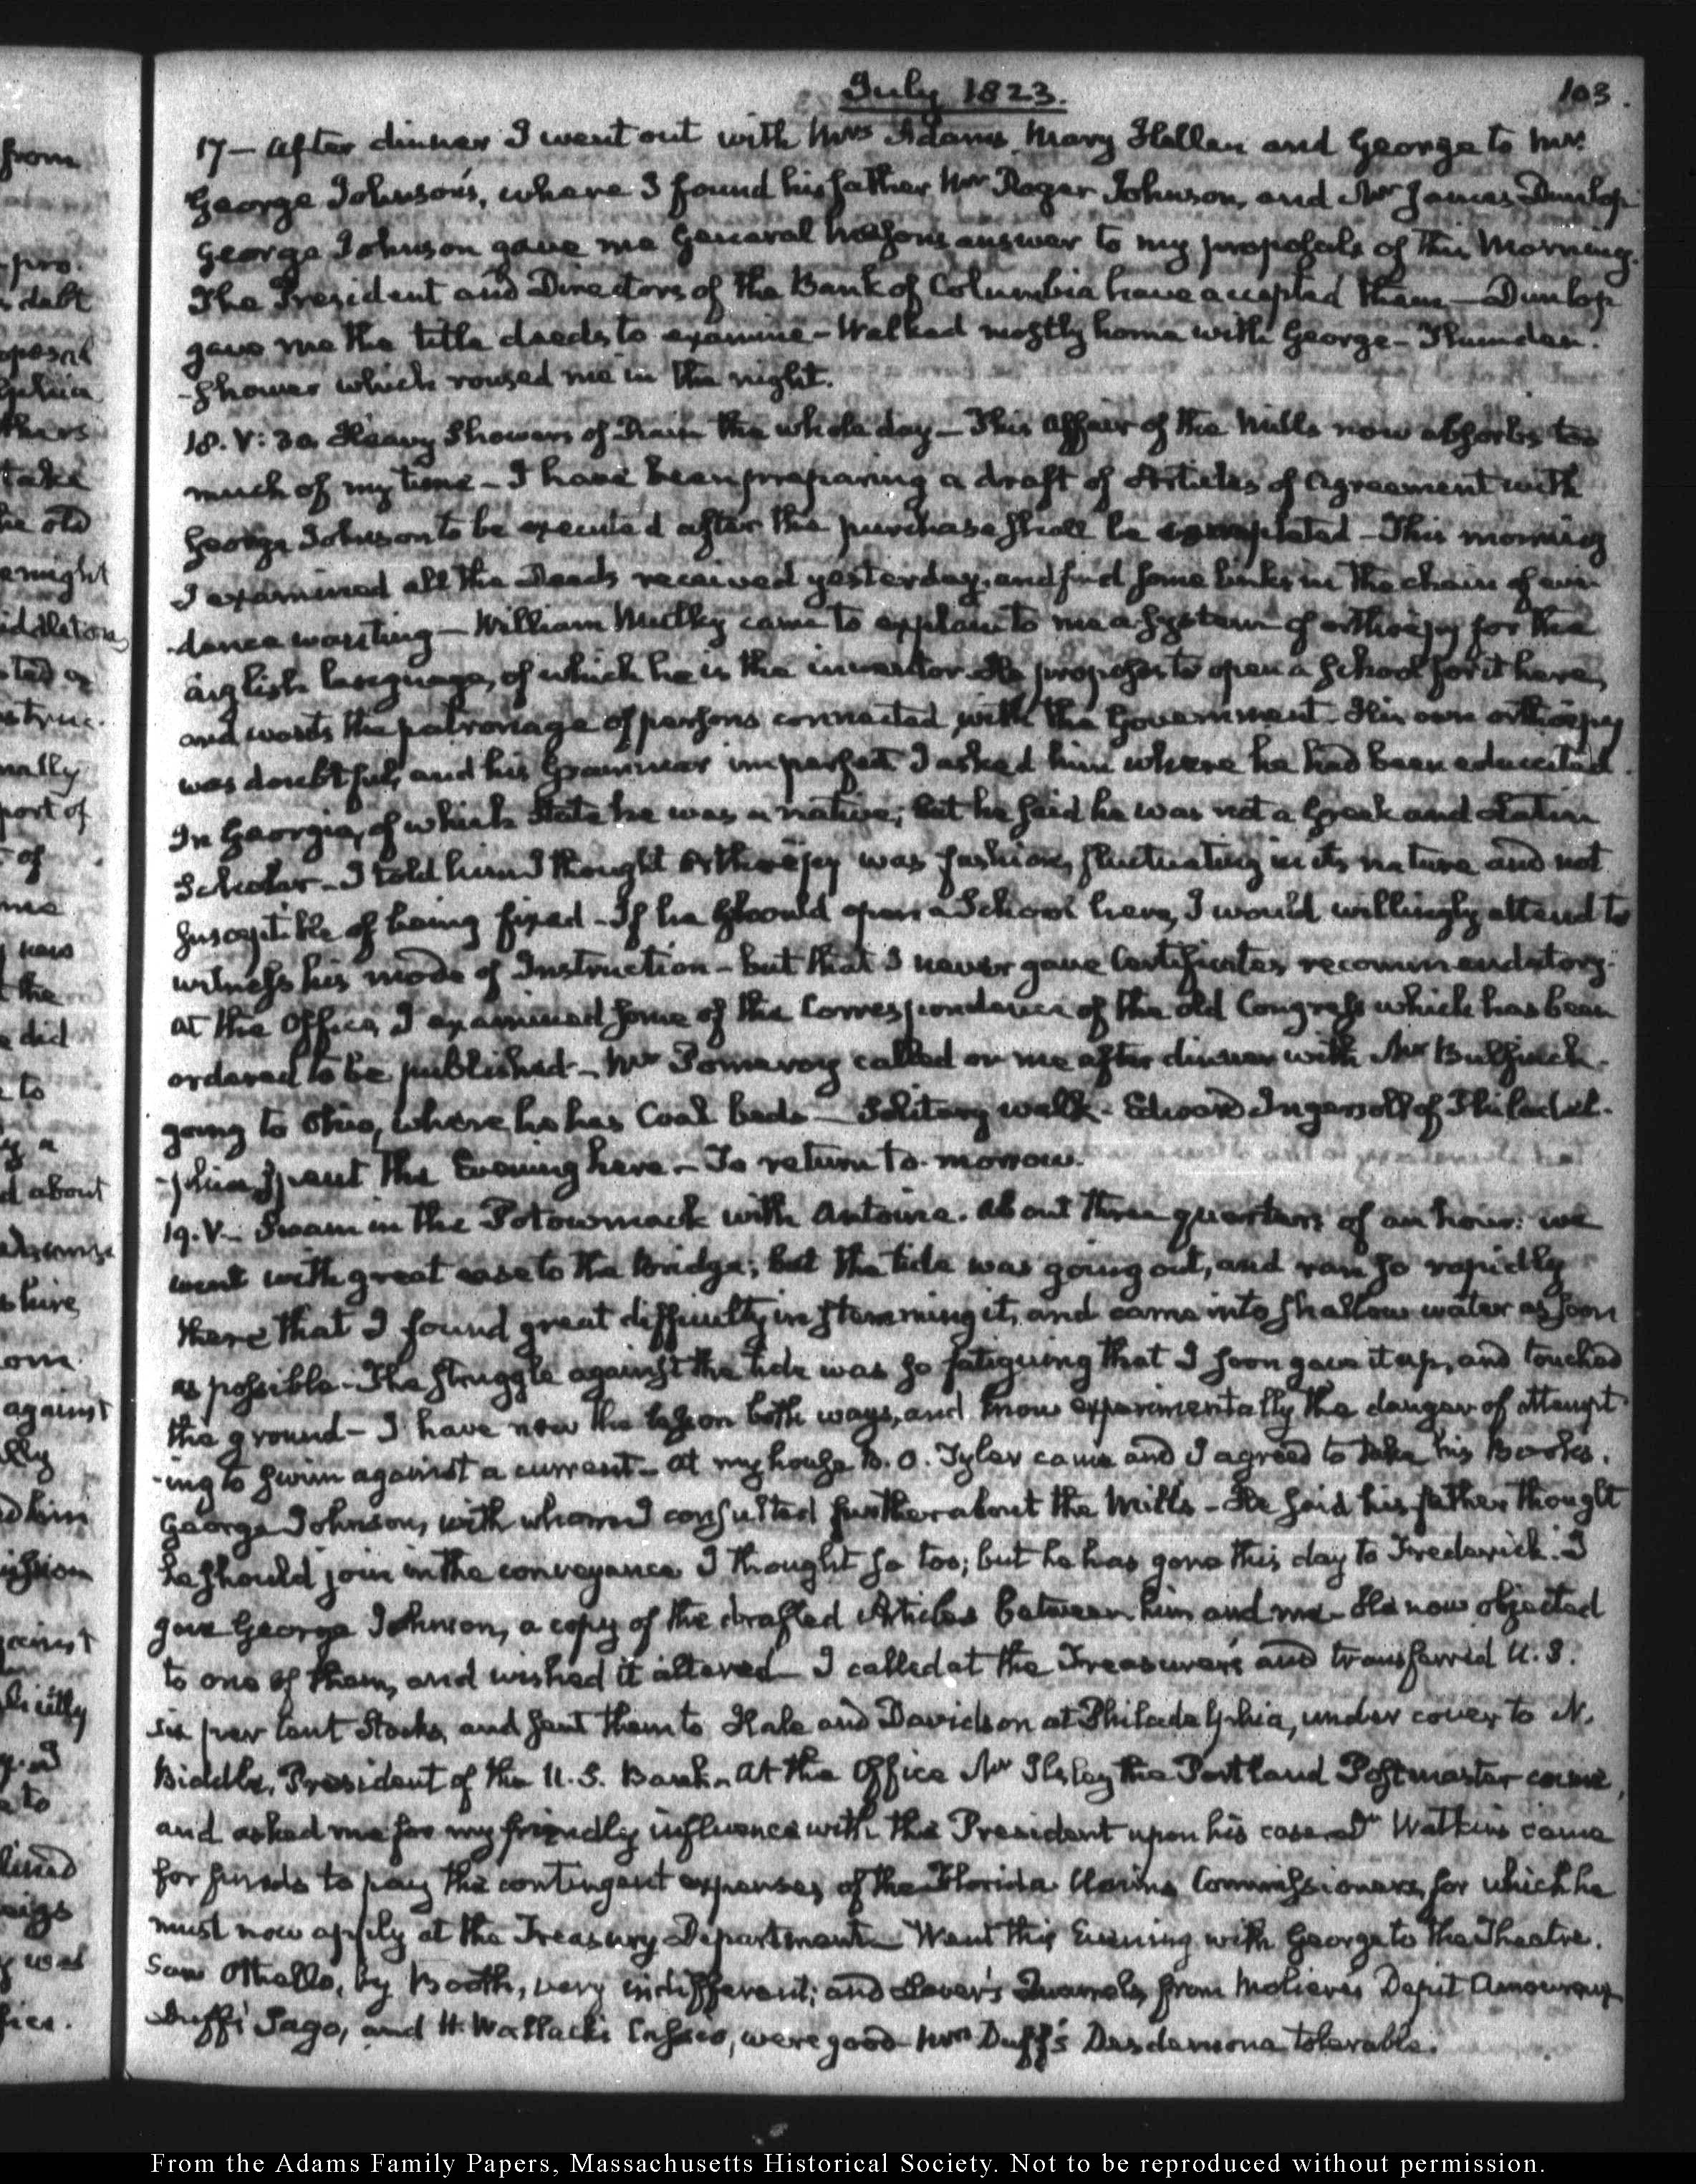 July 1823.
103.
17 — After dinner I went out with Mrs Adams, Mary Hellen and George to Mr
George Johnson's, where I found his father Mr Roger Johnson, and Mr James Dunlop.
George Johnson gave me General Mason's answer to my proposals of this Morning.
The President and Directors of the Bank of Columbia have accepted them — Dunlop
gave me the title deeds to examine — Walked mostly home with George — Thunder-
-Shower which roused me in the night.
18. V: 30. Heavy Showers of Rain the whole day — This affair of the Mills now absorbs too
much of my time — I have been preparing a draft of Articles of Agreement with
George Johnson to be executed after the purchase shall be completed — This morning
I examined all the Deeds received yesterday, and find some links in the chain of evi-
-dence wanting — William Mulkey came to explain to me a system of orthoepy for the
English language, of which he is the inventor. He proposes to open a School for it here,
and wants the patronage of persons connected with the Government. His own orthoepy
was doubtful, and his Grammar imperfect. I asked him where he had been educated.
In Georgia, of which State he was a native; but he said he was not a Greek and Latin
Scholar — I told him I thought Orthoepy was fashion, fluctuating in its nature and not
susceptible of being fixed — If he should open a School here, I would willingly attend to
witness his mode of Instruction — but that I never gave Certificates recommendatory.
At the Office, I examined some of the Correspondence of the old Congress which has been
ordered to be published — Mr Pomeroy called on me after dinner with Mr Bulfinch.
going to Ohio, where he has Coal beds — Solitary walk — Edward Ingersoll of Philadel-
-phia, spent the Evening here — To return to-morrow.
19. V — Swam in the Potowmack with Antoine. About three quarters of an hour: we
went with great ease to the Bridge; but the tide was going out, and ran so rapidly
there that I found great difficulty in stemming it, and came into shallow water as soon
as possible — The struggle against the tide was so fatiguing that I soon gave it up, and touched
the ground — I have now the lesson both ways, and know experimentally the danger of attempt-
-ing to swim against a current — At my house B. O. Tyler came and I agreed to take his Books.
George Johnson, with whom I consulted further about the Mills — He said his father thought
he should join in the conveyance. I thought so too; but he has gone this day to Frederick. I
gave George Johnson, a copy of the drafted Articles between him and me — He now objected
to one of them, and wished it altered — I called at the Treasurer's and transferred U.S.
six per Cent Stocks, and sent them to Hale and Davidson at Philadelphia, under cover to N.
Biddle, President of the U.S. Bank. At the Office Mr Ilsley the Portland Postmaster came,
and asked me for my friendly influence with the President upon his case — Dr Watkins came
for funds to pay the contingent expenses of the Florida Claims Commissioners, for which he
must now apply at the Treasury Department — Went this Evening with George to the Theatre.
Saw Othello, by Booth, very indifferent; and Lover's Quarrels, from Moliere's Depit Amoureux
Duff's Iago, and H. Wallack's Cassio, were good — Mrs Duff's Desdemona tolerable.
From the Adams Family Papers, Massachusetts Historical Society. Not to be reproduced without permission.